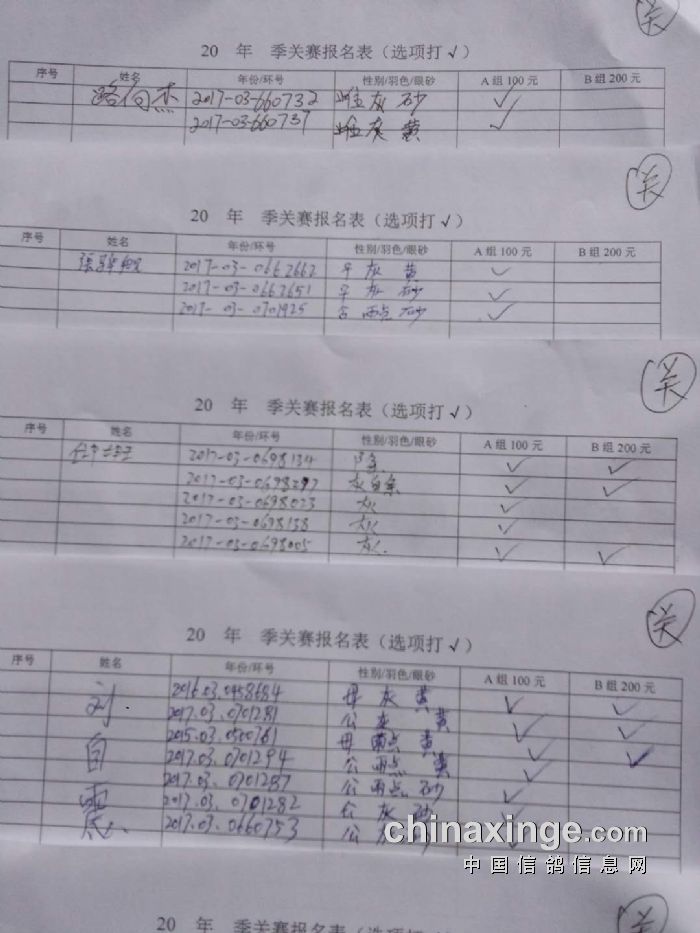 关
20 年 季关赛报名表（选项打√）
序号 姓名 年份/环号 性别/羽色/眼砂 A组100元 B组200元
路向杰 2017-03-660732 雌 灰 砂 √
2017-03-660737 雌 灰 黄 √
关
20 年 季关赛报名表（选项打√）
序号 姓名 年份/环号 性别/羽色/眼砂 A组100元 B组200元
2017-03-0662662 灰 黄 √
2017-03-0662651 灰 砂 √
2017-03-0701925 雨点 砂 √
关
20 年 季关赛报名表（选项打√）
序号 姓名 年份/环号 性别/羽色/眼砂 A组100元 B组200元
2017-03-0698134 √ √
2017-03-0698297 灰白条 √ √
2017-03-0698023 灰 √
2017-03-0698138 灰 √
2017-03-0698005 灰 √ √
关
20 年 季关赛报名表（选项打√）
序号 姓名 年份/环号 性别/羽色/眼砂 A组100元 B组200元
刘自震 2016.03.0458684 母 灰 黄 √ √
2017.03.0701281 公 灰 黄 √ √
2015.03.0500761 母 雨点 黄 √ √
2017.03.0701294 公 雨点 黄 √
2017.03.0701287 公 雨点 砂 √
2017.03.0701282 公 灰 砂
2017.03.0660753 公 √
chinaxinge.com
中国信鸽信息网
关
20 年 季关赛报名表（选项打√）